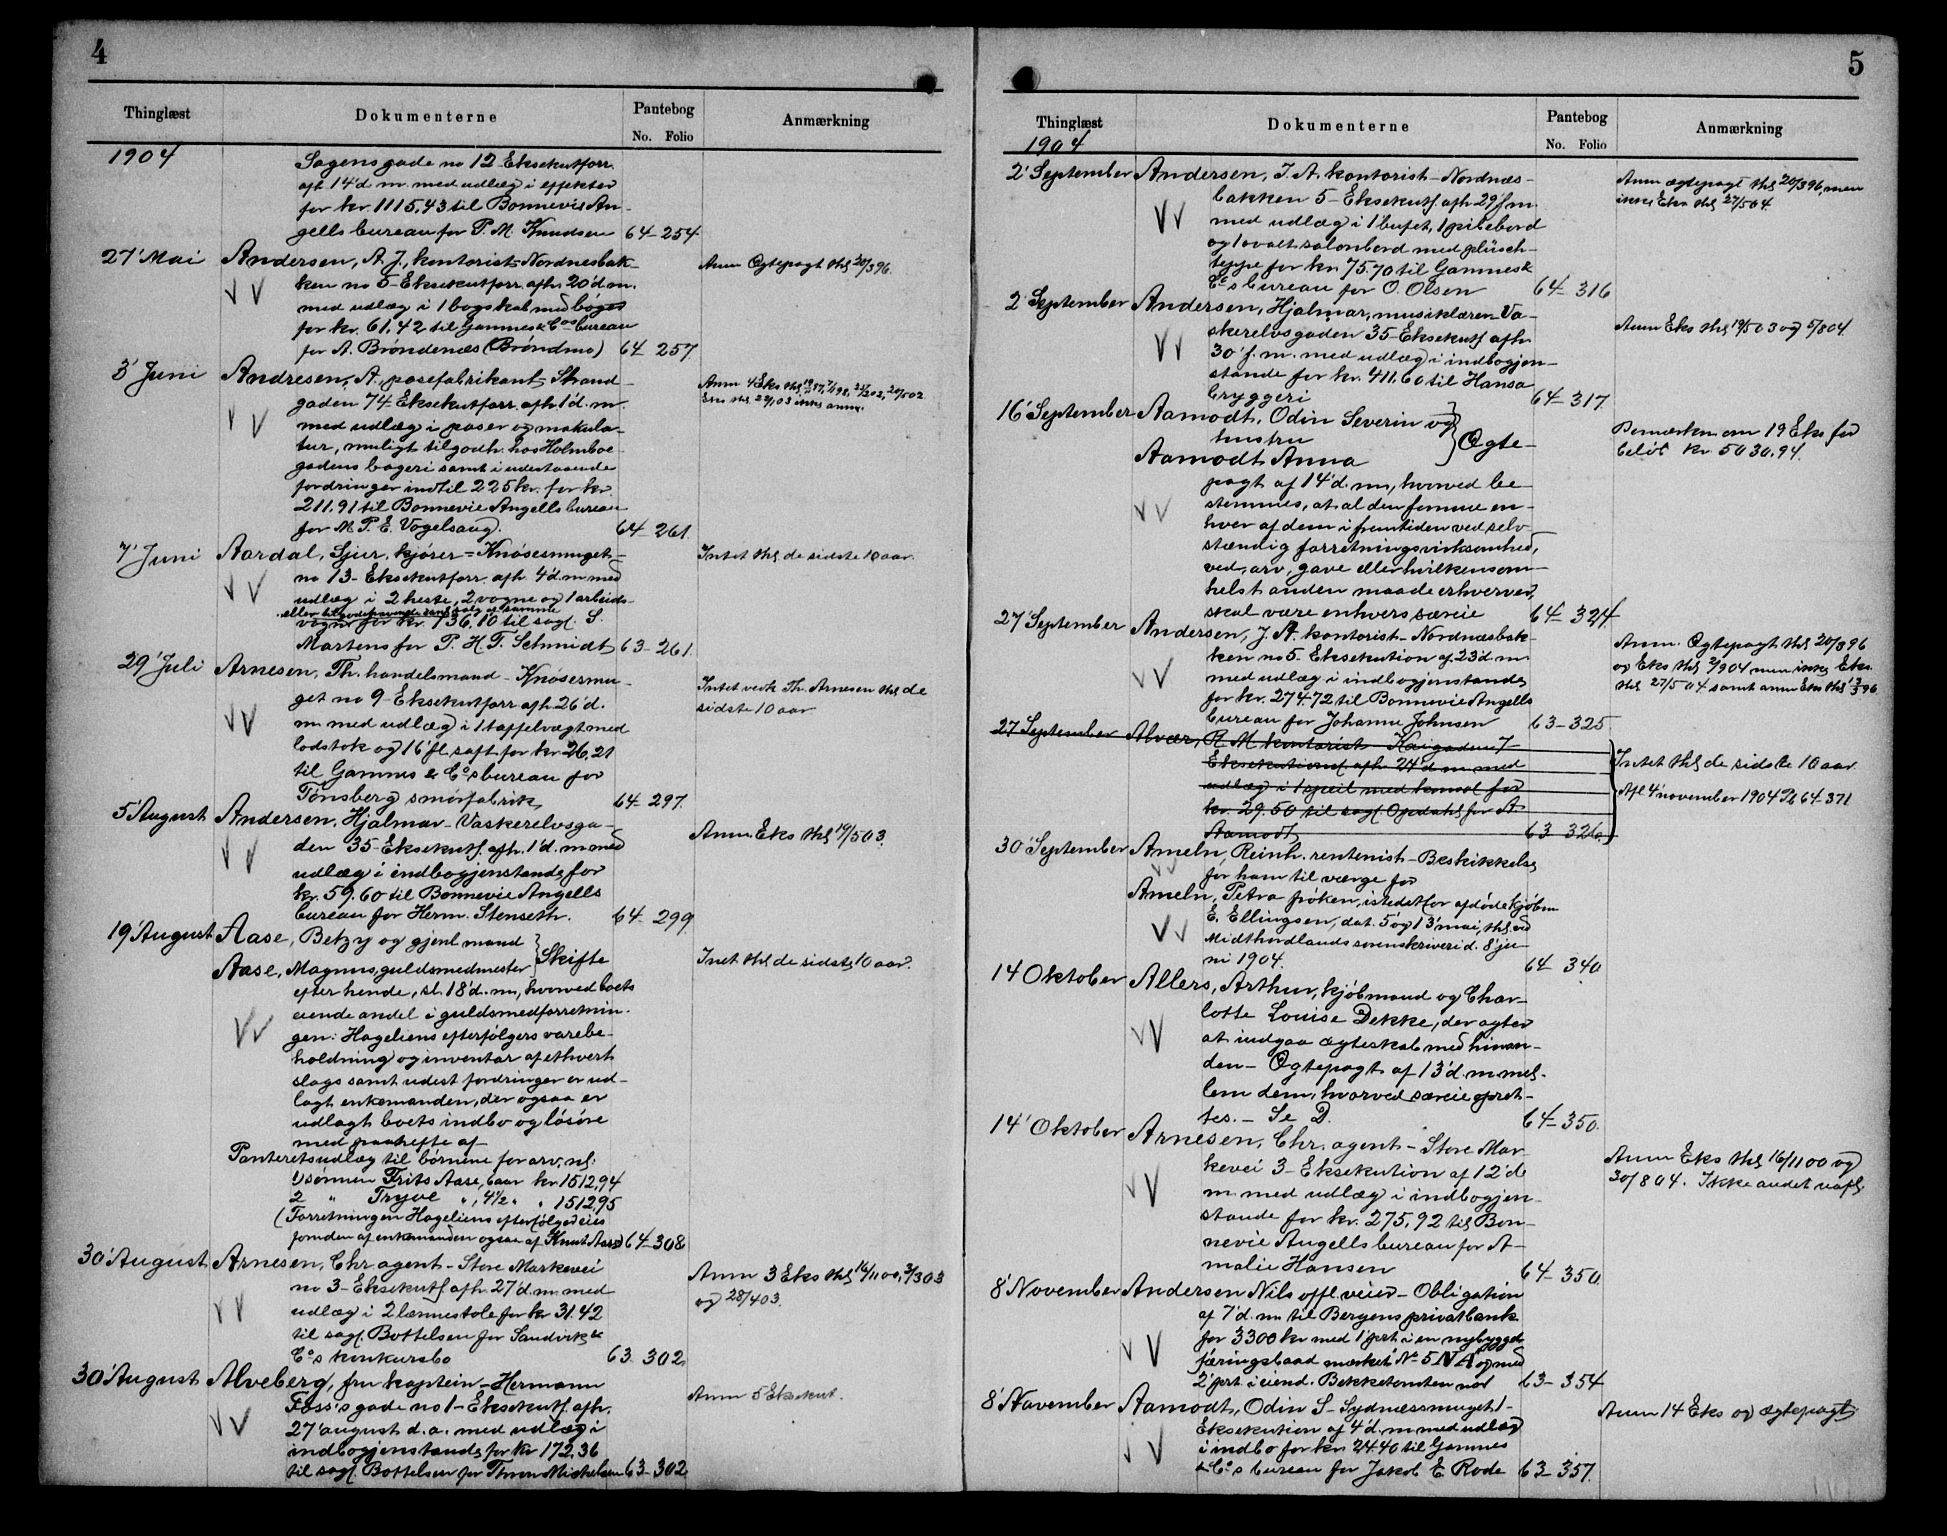 4
Thinglæst Dokumenterne Pantebog No. Folio Anmærkning
1904 Sagensgade no 12 Eksekutforr.
afh 14'd. m. med udlæg i effekter
for kr. 1115,43 til Bonnevie An-
gells bureau for P. M. Knudsen 64-254
27' Mai Andersen, A. J., kontorist-Nordnesbak- Anm Ægtepagt thl 20/396.
ken no 5-Eksekutforr. afh. 20'd m.
med udlæg i 1 bogskab med bøger
for kr. 61,42 til Gammes & Cos bureau
for A. Brøndenæs (Brøndmo) 64-257
3' Juni Andresen, A., posefabrikant, Strand- Anm 4 Eks thl
gaden 74-Eksekutforr. afh. 1'd. m.
med udlæg i poser og makula-
tur, muligt tilgodh. hos Holmboe
gadens bageri samt i udestaaende
fordringer indtil 225 kr. for kr.
211.91 til Bonnevie Angells bureau
for M. P. E. Vogelsang. 64-261
7' Juni Aardal, Sjur, kjører = Knøsesmuget- Intet thl de sidste 10 aar.
no 13-Eksekutforr. afh. 4'd. m med
udlæg i 2 heste, 2 vogne og 1 arbeids-
eller tilgodehavende salg af samme
vogn for kr. 136,10 til sagf. S.
Martens for P. H. F. Schmidt 63-261
29' Juli Arnesen, Th. handelsmand-Knøsesmu-
get no 9-Eksekutforr. afh. 26'd. Intet vedk Th. Arnesen thl de
m. med udlæg i 1 taffelvægt med sidste 10 aar
lodstok og 16 fl. saft for kr 26,21
til Gammes & Co's bureau for
Tønsberg smørfabrik 64-297.
5' August Andersen, Hjalmar-Vaskerelvsga- Anm. Eks thl 19/503.
den 35-Eksekutf. afh. 1'd. m med
udlæg i indbogjenstande for
kr. 59.60 til Bonnevie Angells
bureau for Herm. Stenseth. 64-299
19' August Aase, Betzy og gjenl. mand
Aase, Magnus, guldsmedmester } Skifte Intet thl de sidste 10 aar.
efter hende, sl. 18'd. m, hvorved boets
eiende andel i guldsmedforretnin-
gen: Hageliens efterfølgers varebe-
holdning og inventar af ethvert
slags samt udest fordringer er ud-
lagt enkemanden, der ogsaa er
udlagt boets indbo og løsøre
med paahefte af
Panteretsudlæg til børnene for arv, nl:
1) sønnen Frits Aase, 6 aar kr. 1512,94
2 " Tryve ", 4½ " " 1512,95
(Forretningen Hageliens efterfølger eies
foruden af enkemanden ogsaa af Knut Aase) 64-308
30' August Arnesen, Chr. agent-Store Markevei Anm 3 Eks thl 16/1100, 3/303
no 3-Eksekutf. afh. 27'd. m. med og 28/403.
udlæg i 2 lænnestole for kr 31.42
til sagf. Bottelsen for Sandvik &
Co's konkursbo 63-302
30' August Alveberg, fru kaptein-Hermann Anm 5 Eksekut.
Foss's gade no 1-Eksekutf. afh.
27' august d. a. med udlæg i
indbogjenstande for kr 172,36
til sagf. Bottelsen for Thron Michelsen 63-302
5
Thinglæst Dokumenterne Pantebog No. Folio Anmærkning
1904
2' September Andersen, J. A. kontorist-Nordnæs- Anm ægtepagt thl 20/396, men
bakken 5-Eksekutf. afh. 29' f. m. ikke Eks thl 27/504.
med udlæg i 1 bufet, 1 pilebord
og 1 ovalt salonbord med plüsch-
teppe for kr. 75.70 til Gammes &
Co's bureau for O. Olsen 64-316
2' September Andersen, Hjalmar, musiklærer-Va- Anm Eks thl 19/503 og 5/804.
skerelvsgaden 35-Eksekutf. afh.
30' f. m. med udlæg i indbogjen-
stande for kr. 411.60 til Hansa
bryggeri 64-317.
16' September Aamodt, Odin Severin og Bemærkn om 19 Eks for
hustru } Ægte- beløb kr. 5030.94.
Aamodt Anna
pagt af 14'd. m., hvorved be-
stemmes, at al den formue en-
hver af dem i fremtiden ved selv-
stændig forretningsvirksomhed,
ved arv, gave eller hvilkensom-
helst anden maade erhverver,
skal være enhvers særeie 64-324.
27' September Andersen, J. A. kontorist-Nordnæsbak- Anm. Ægtepagt thl 20/396
ken no 5-Eksekution af 23'd m. og Eks thl 2/904 men ikke Eks.
med udlæg i indbogjenstande thl 27/504 samt anm Eks thl
for kr. 274.72 til Bonnevie Angells
bureau for Johanne Johnsen 63-325
27 September Alvær, R. M. kontorist-Kaigaden 7 Intet thl de sidste 10 aar
Eksekutionsf. afh. 24'd m. med
udlæg i 1 speil med konsol for Afl 4' november 1904 Pb 64-371
kr. 29.50 til sagf. Opdahl for A.
Aamodt 63-326.
30' September Ameln, Reinh. rentenist-Beskikkelse
for ham til værge for
Ameln, Petra frøken, istedetfor afdøde kjøbm
E. Ellingsen, dat. 5' og 13' mai, thl. ved
Midthordlands sorenskriveri d. 8' ju-
ni 1904. 64-340
14 Oktober Allers, Arthur, kjøbmand og Char-
lotte Louise Dekke, der agter
at indgaa ægteskab med hinan-
den-Ægtepagt af 13'd. m mel-
lem dem, hvorved særeie opret-
tes.-Se D. 64-350.
14' Oktober Arnesen, Chr. agent-Store Mar- Anm Eks thl 16/1100 og
kevei 3-Eksekution af 12'd 30/804. Ikke andet uafl.
m. med udlæg i indbogjen-
stande for kr. 275,92 til Bon-
nevie Angells bureau for A-
malie Hansen 64-350
8' November Andersen Nils offl. veier-Obligation
af 7'd. m. til Bergens privatbank
for 3300 kr med 1' prt. i en nybygget
færingsbaad mærket No 5 NA og med
2' prt. i eiend. Bekketomten 63-354
8' November Aamodt, Odin S-Sydnæssmuget 1- Anm 14 Eks og ægtepagt
Eksekution af 4'd. m med udlæg
i indbo for kr. 24.40 til Gammes
& Co's bureau for Jakob E. Rode 63-357.